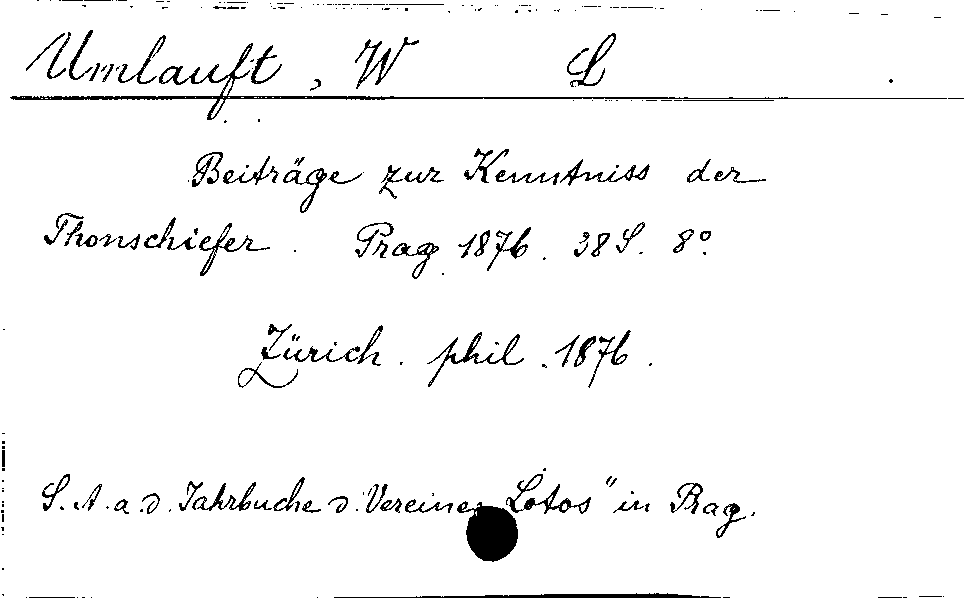 Umlauft, W L.
Beiträge zur Kenntniss der
Thonschiefer. Prag 1876. 38 S. 8°.
Zürich. phil. 1876.
S. A. a. d. Jahrbuche d. Vereines Lotos" in Prag.